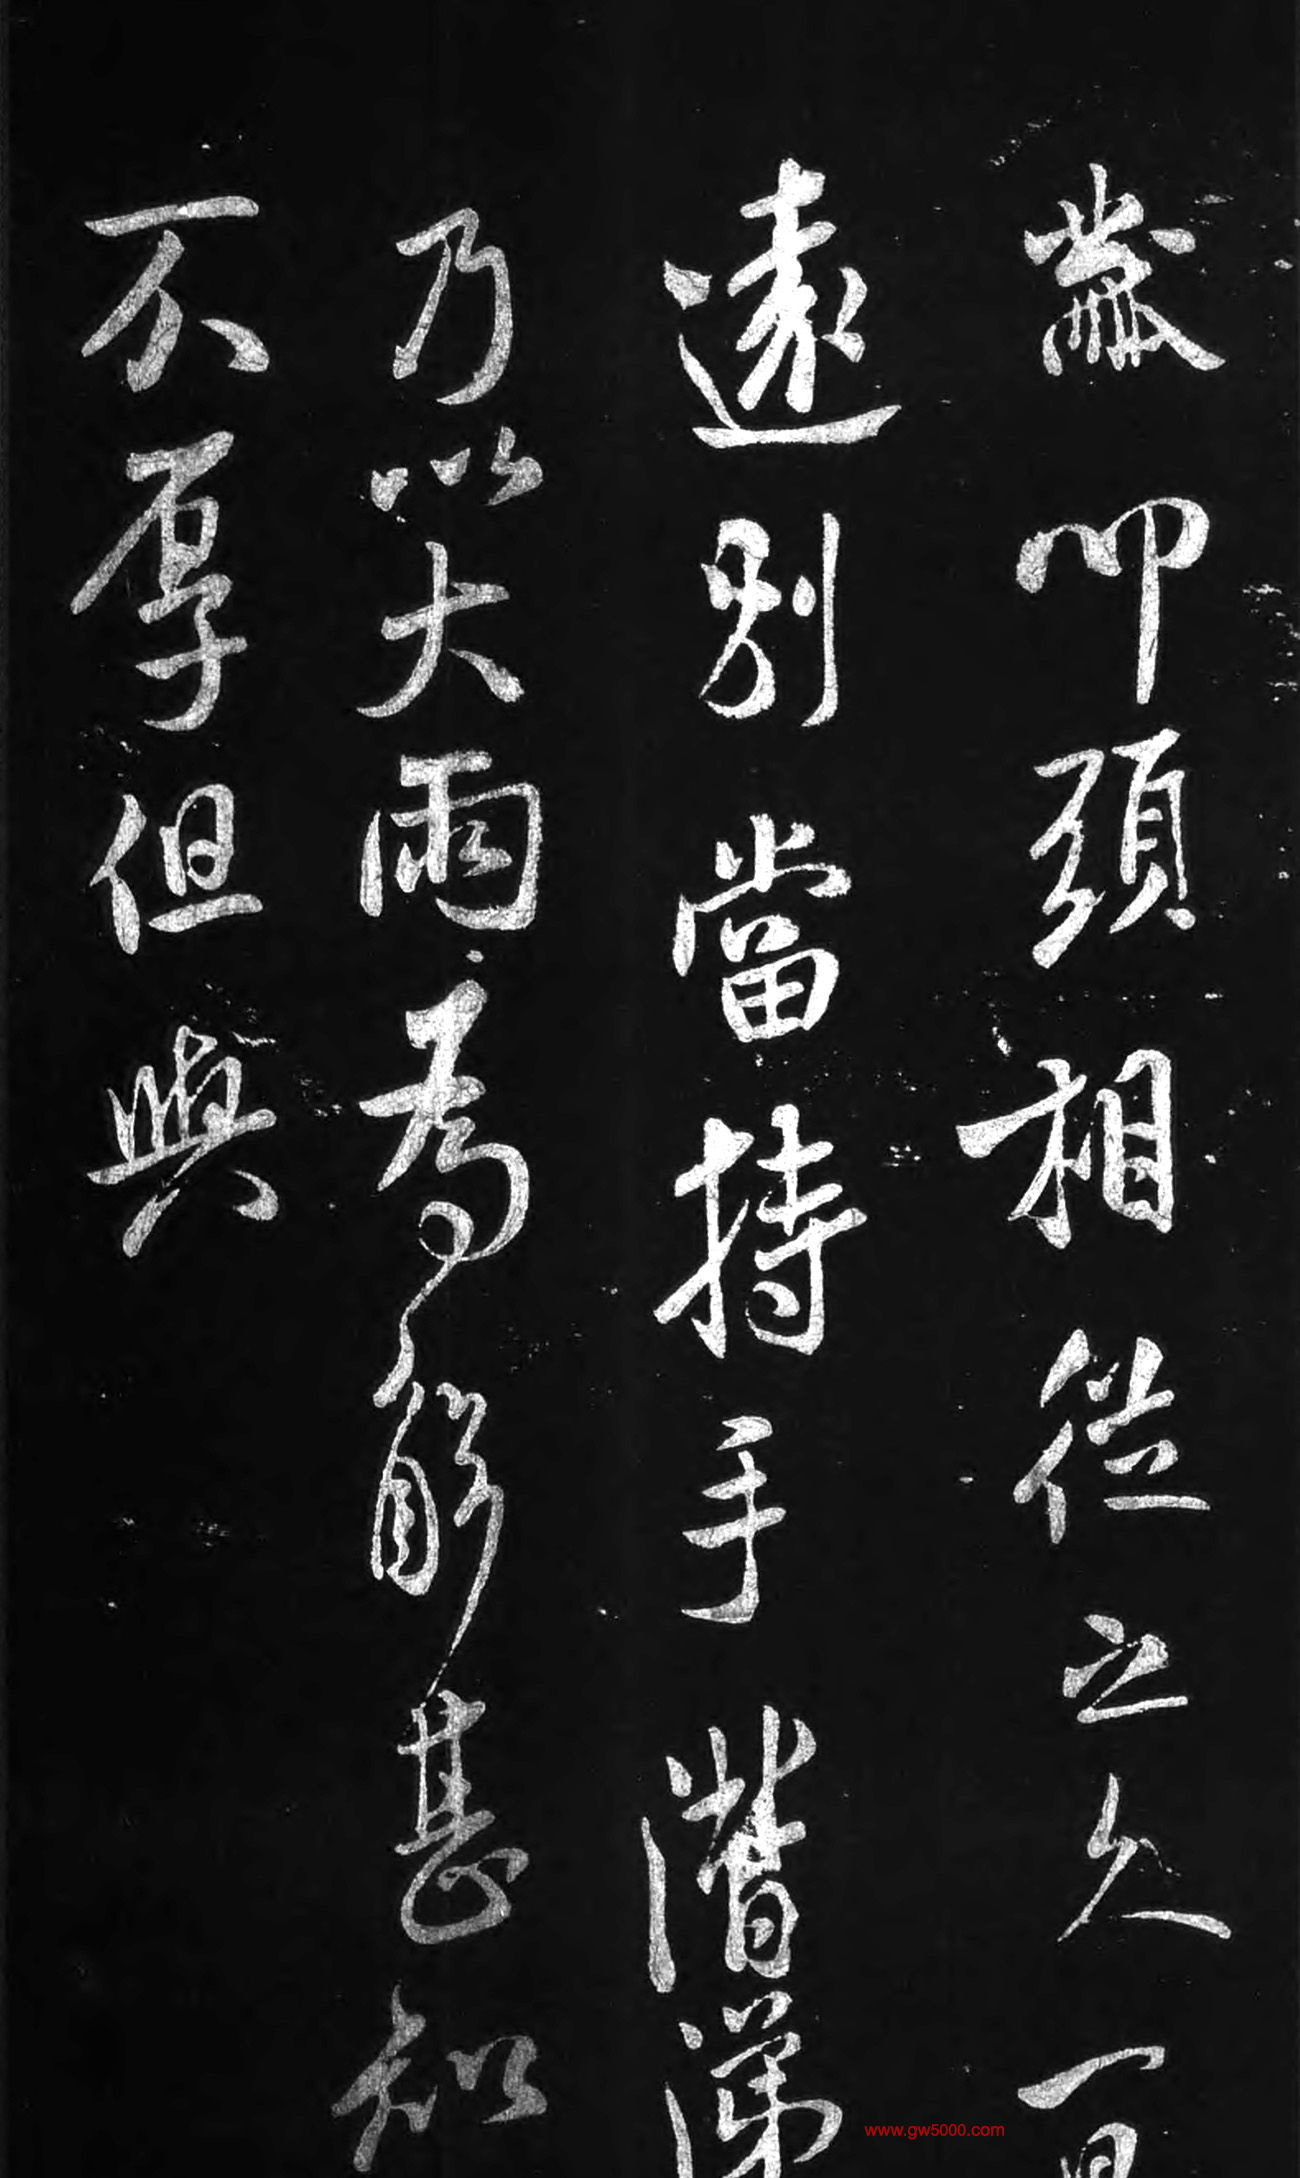 黻叩頭相從之久一旦
遠別當持手潸涕
乃以大雨為解甚知
不厚但與
www.gw5000.com